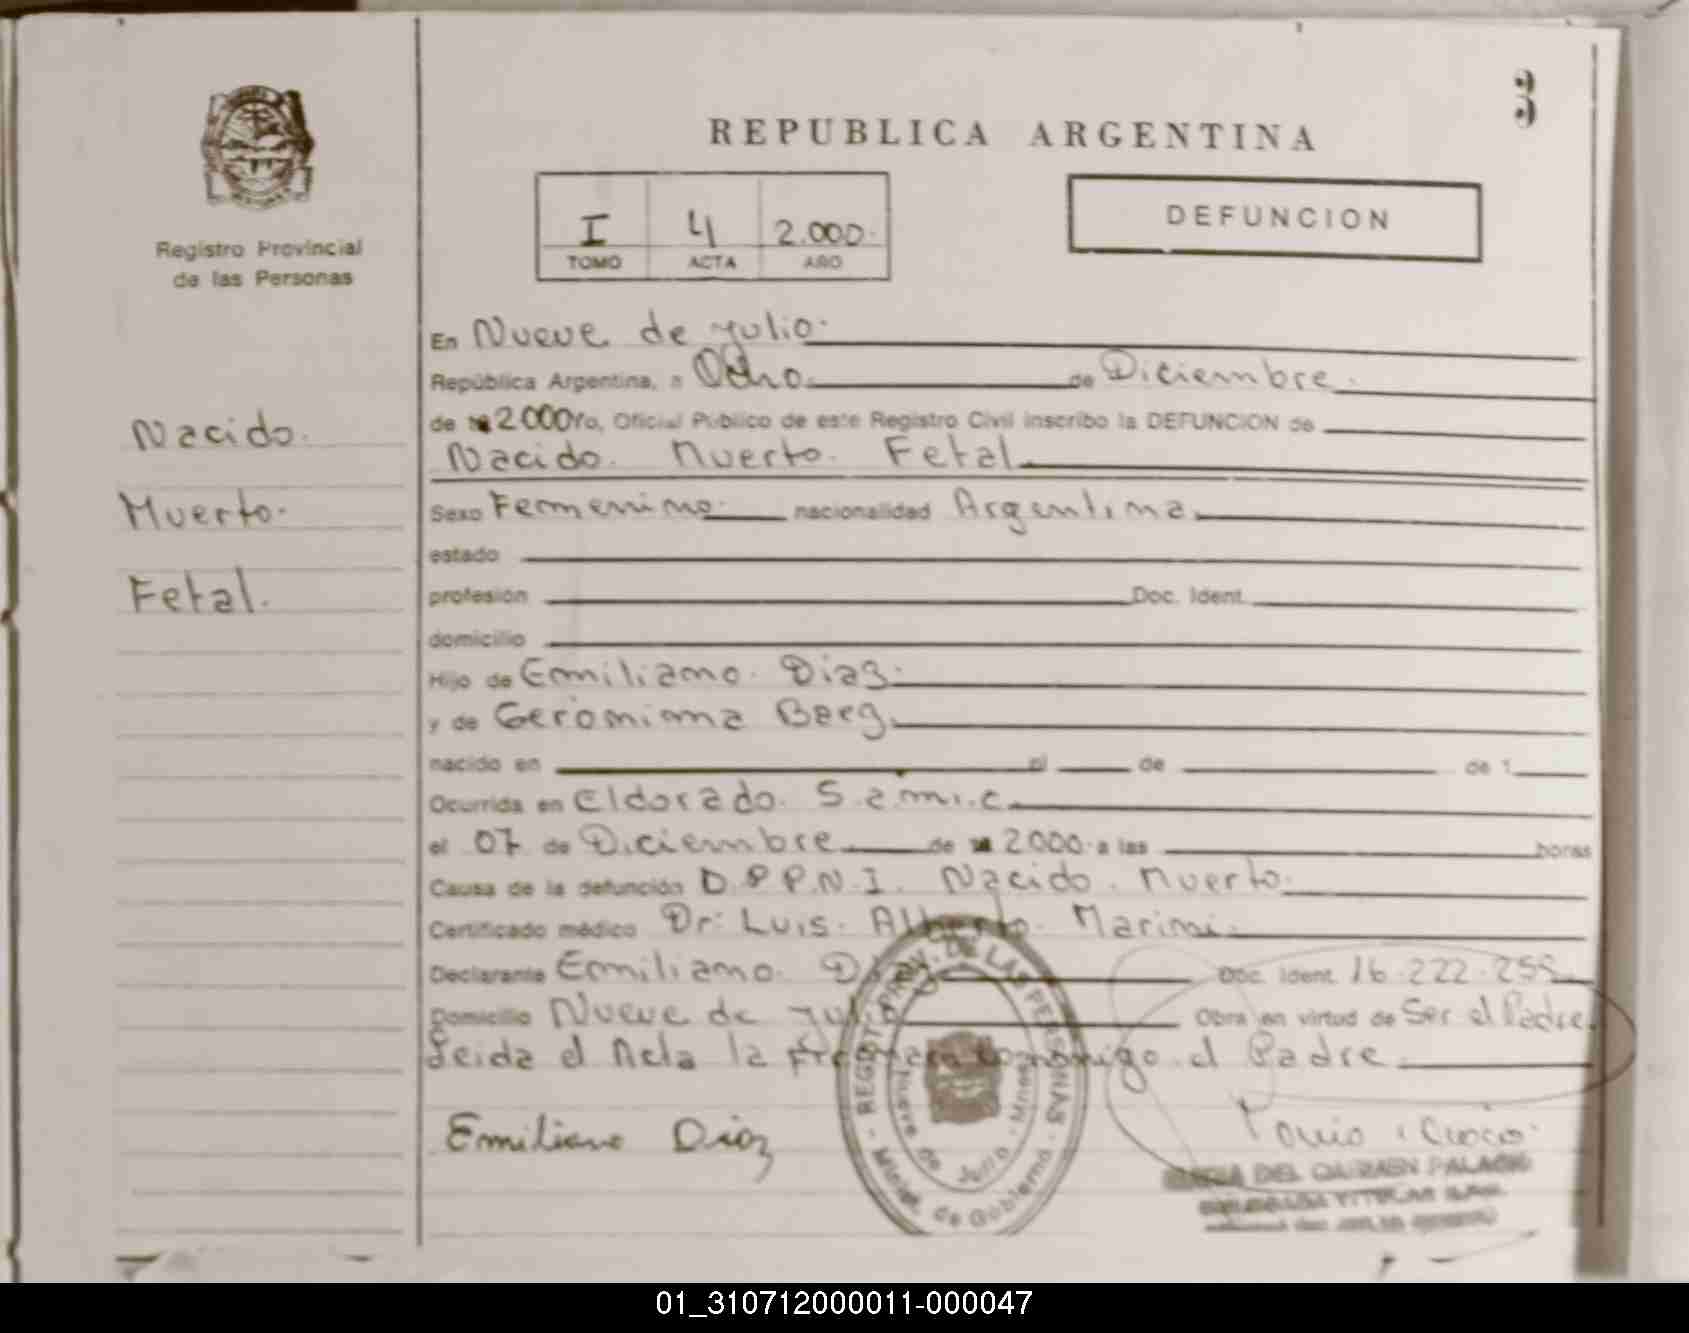 3
REPUBLICA ARGENTINA
I 4 2.000.
TOMO ACTA AÑO
DEFUNCION
Registro Provincial
de las Personas
Nacido.
Muerto.
Fetal.
En Nueve de Julio.
República Argentina, a Ocho. de Diciembre.
de 2.000 Yo, Oficial Público de este Registro Civil inscribo la DEFUNCION de
Nacido. Muerto. Fetal.
Sexo Femenino. nacionalidad Argentina.
estado
profesión Doc. Ident.
domicilio
Hijo de Emiliano. Diaz.
y de Geronima Baez.
nacido en el de de 1
Ocurrida en Eldorado. S.a.m.i.c.
el 07 de Diciembre de 2.000. a las horas
Causa de la defunción D.P.P.N.I. Nacido. Muerto.
Certificado médico Dr: Luis. Alberto. Marini.
Declarante Emiliano. Diaz. Doc. Ident. 16.222.255
Domicilio Nueve de Julio Obra en virtud de Ser el Padre.
Leida el Acta la conmigo. el Padre.
Emiliano Diaz
REGIST. PROV. DE LAS PERSONAS
Minist. de Gobierno
Nueve de Julio - Mnes
DEL CARMEN PALACIO
01_310712000011-000047